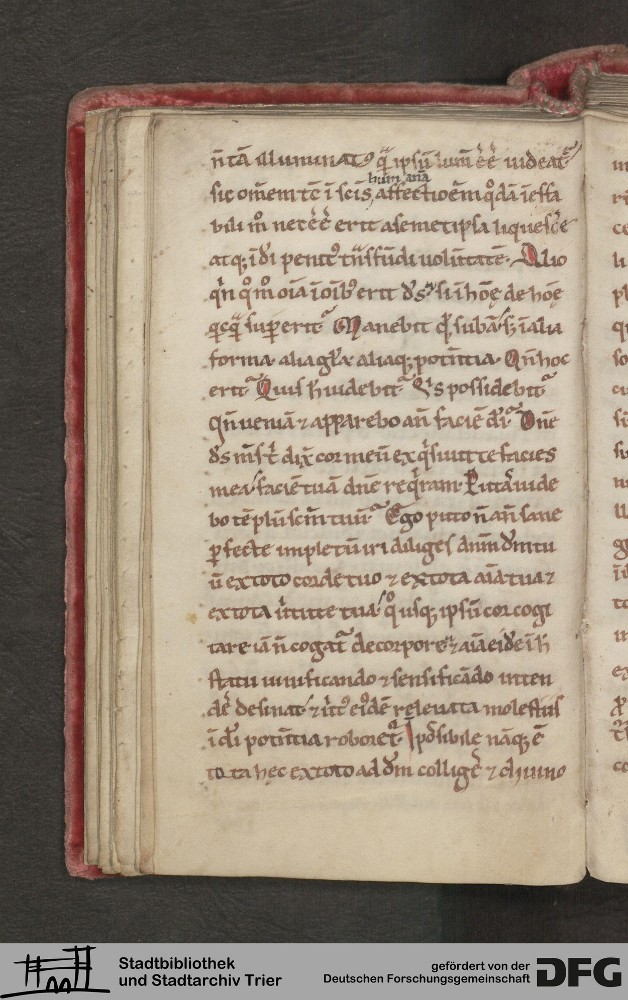 n̄ tā illuminat⁹ qͣ ipsū lum̄ ēē uideat᷑
humanā
sic om̄em tc̄ ī scīs affectioēm q̊dā īeffa
bili m̊ necēē erit a semetipsa liquesc̄e
atq; ī dī penit⁹ tͣnsfūdi uolūtatē. Alio
qͥn qͦm̊ oīa ī oīb⁹ erit d̄s, si ī hōīe de hōīe
qͥcqͣ supererit. Manebit qͥd̄ subā, sꝫ ī alia
forma alia gl̄ia aliaq; potn̄tia. Qn̄ hoc
erit. Quis h̄ uidebit. Qͥs possidebit
Qn̄ ueniā ⁊ apparebo an̄ faciē dī. Dn̄e
d̄s m̄s t̄ dix̄ cor meū exqͥsiuit te facies
mea, faciē tuā dn̄e reqͥram. Putas uide
bo tēplū scm̄ tuū. Ego puto n̄ an̄ sane
ꝑfecte impletū iri diliges dn̄m dm̄ tu
ū ex toto corde tuo ⁊ ex tota aīa tua ⁊
ex tota ūtute tua, qͦusq; ipsū cor cogi
tare iā n̄ cogat᷑ de corpore, ⁊ aīa ei dē ī h̄
statu uiuificando ⁊ sensificādo inten
dē desinat, ⁊ ūt⁹ ei⁹dē releuata molestiis
ī dī potn̄tia roboret᷑. Īpossibile nāq; ē
tota hęc ex toto ad dm̄ colligē ⁊ diuino
Stadtbibliothek
und Stadtarchiv Trier
gefördert von der
Deutschen Forschungsgemeinschaft
DFG